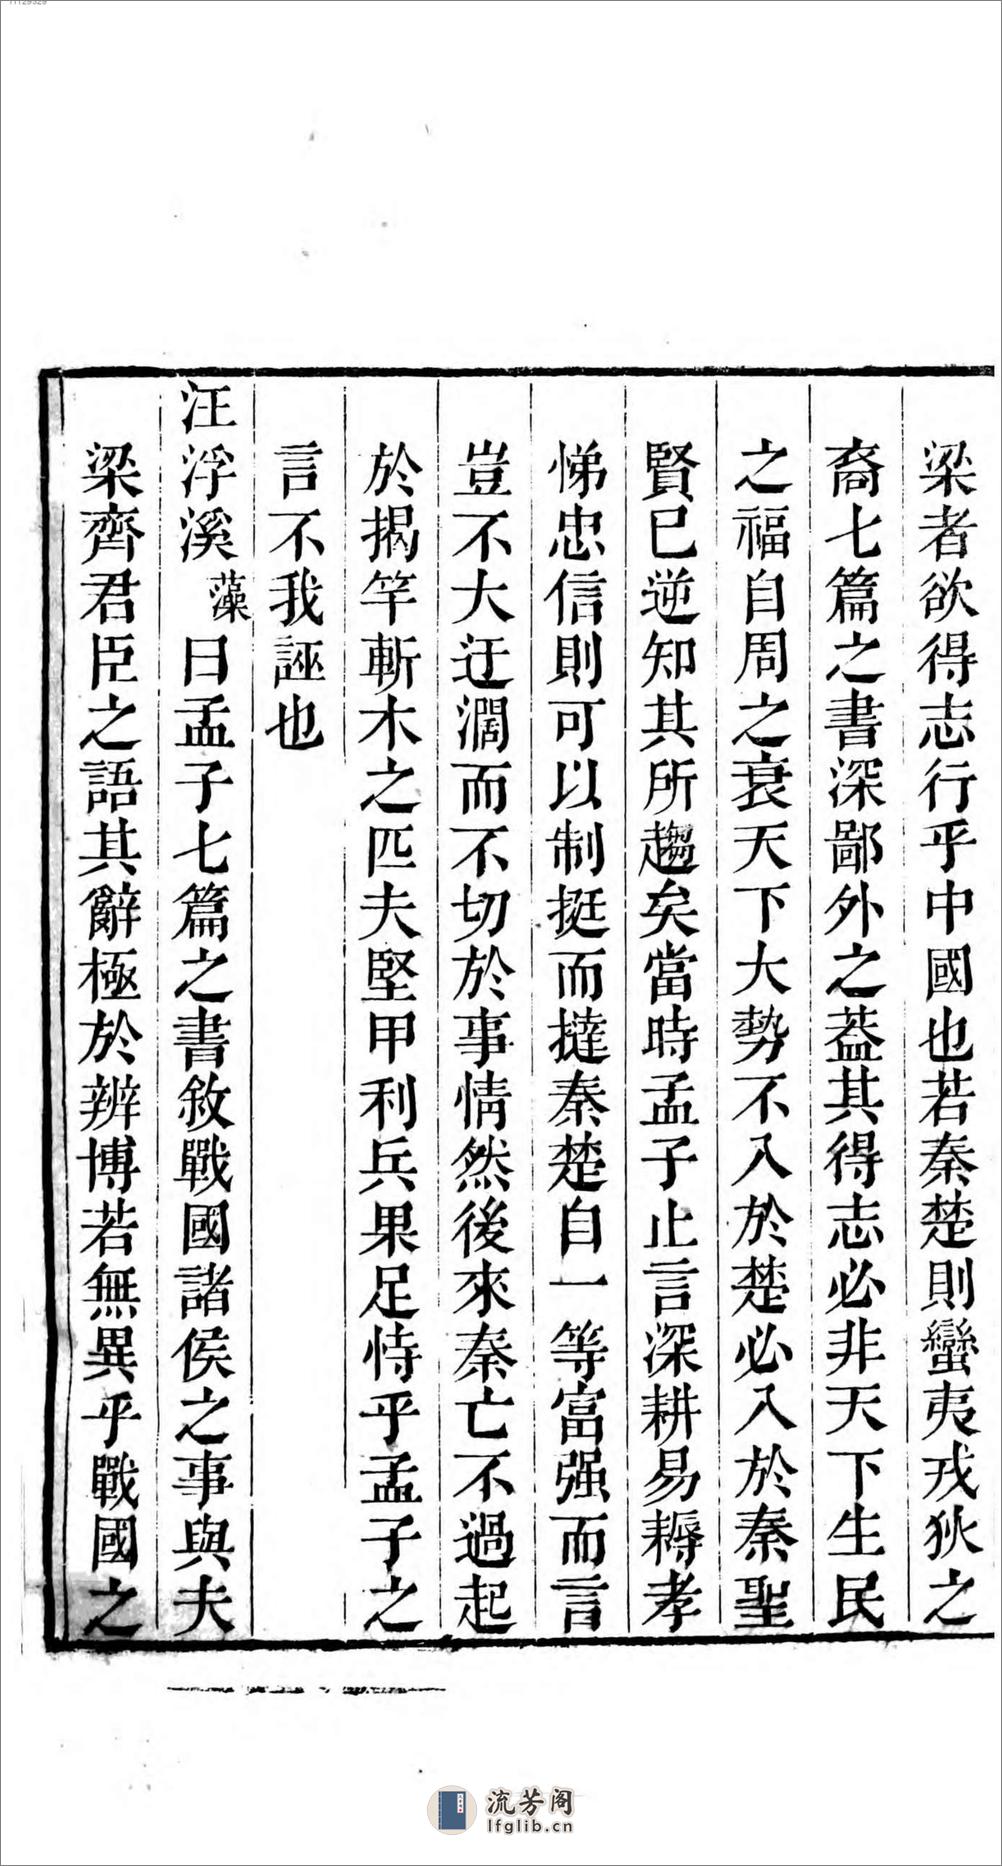 梁者欲得志行乎中國也若秦楚則蠻夷戎狄之
裔七篇之書深鄙外之葢其得志必非天下生民
之福自周之衰天下大勢不入於楚必入於秦聖
賢已逆知其所趨矣當時孟子止言深耕易耨孝
悌忠信則可以制挺而撻秦楚自一等富强而言
豈不大迂濶而不切於事情然後來秦亡不過起
於揭竿斬木之匹夫堅甲利兵果足恃乎孟子之
言不我誣也
汪浮溪藻曰孟子七篇之書敘戰國諸侯之事與夫
梁齊君臣之語其辭極於辨博若無異乎戰國之
流芳阁
lfglib.cn